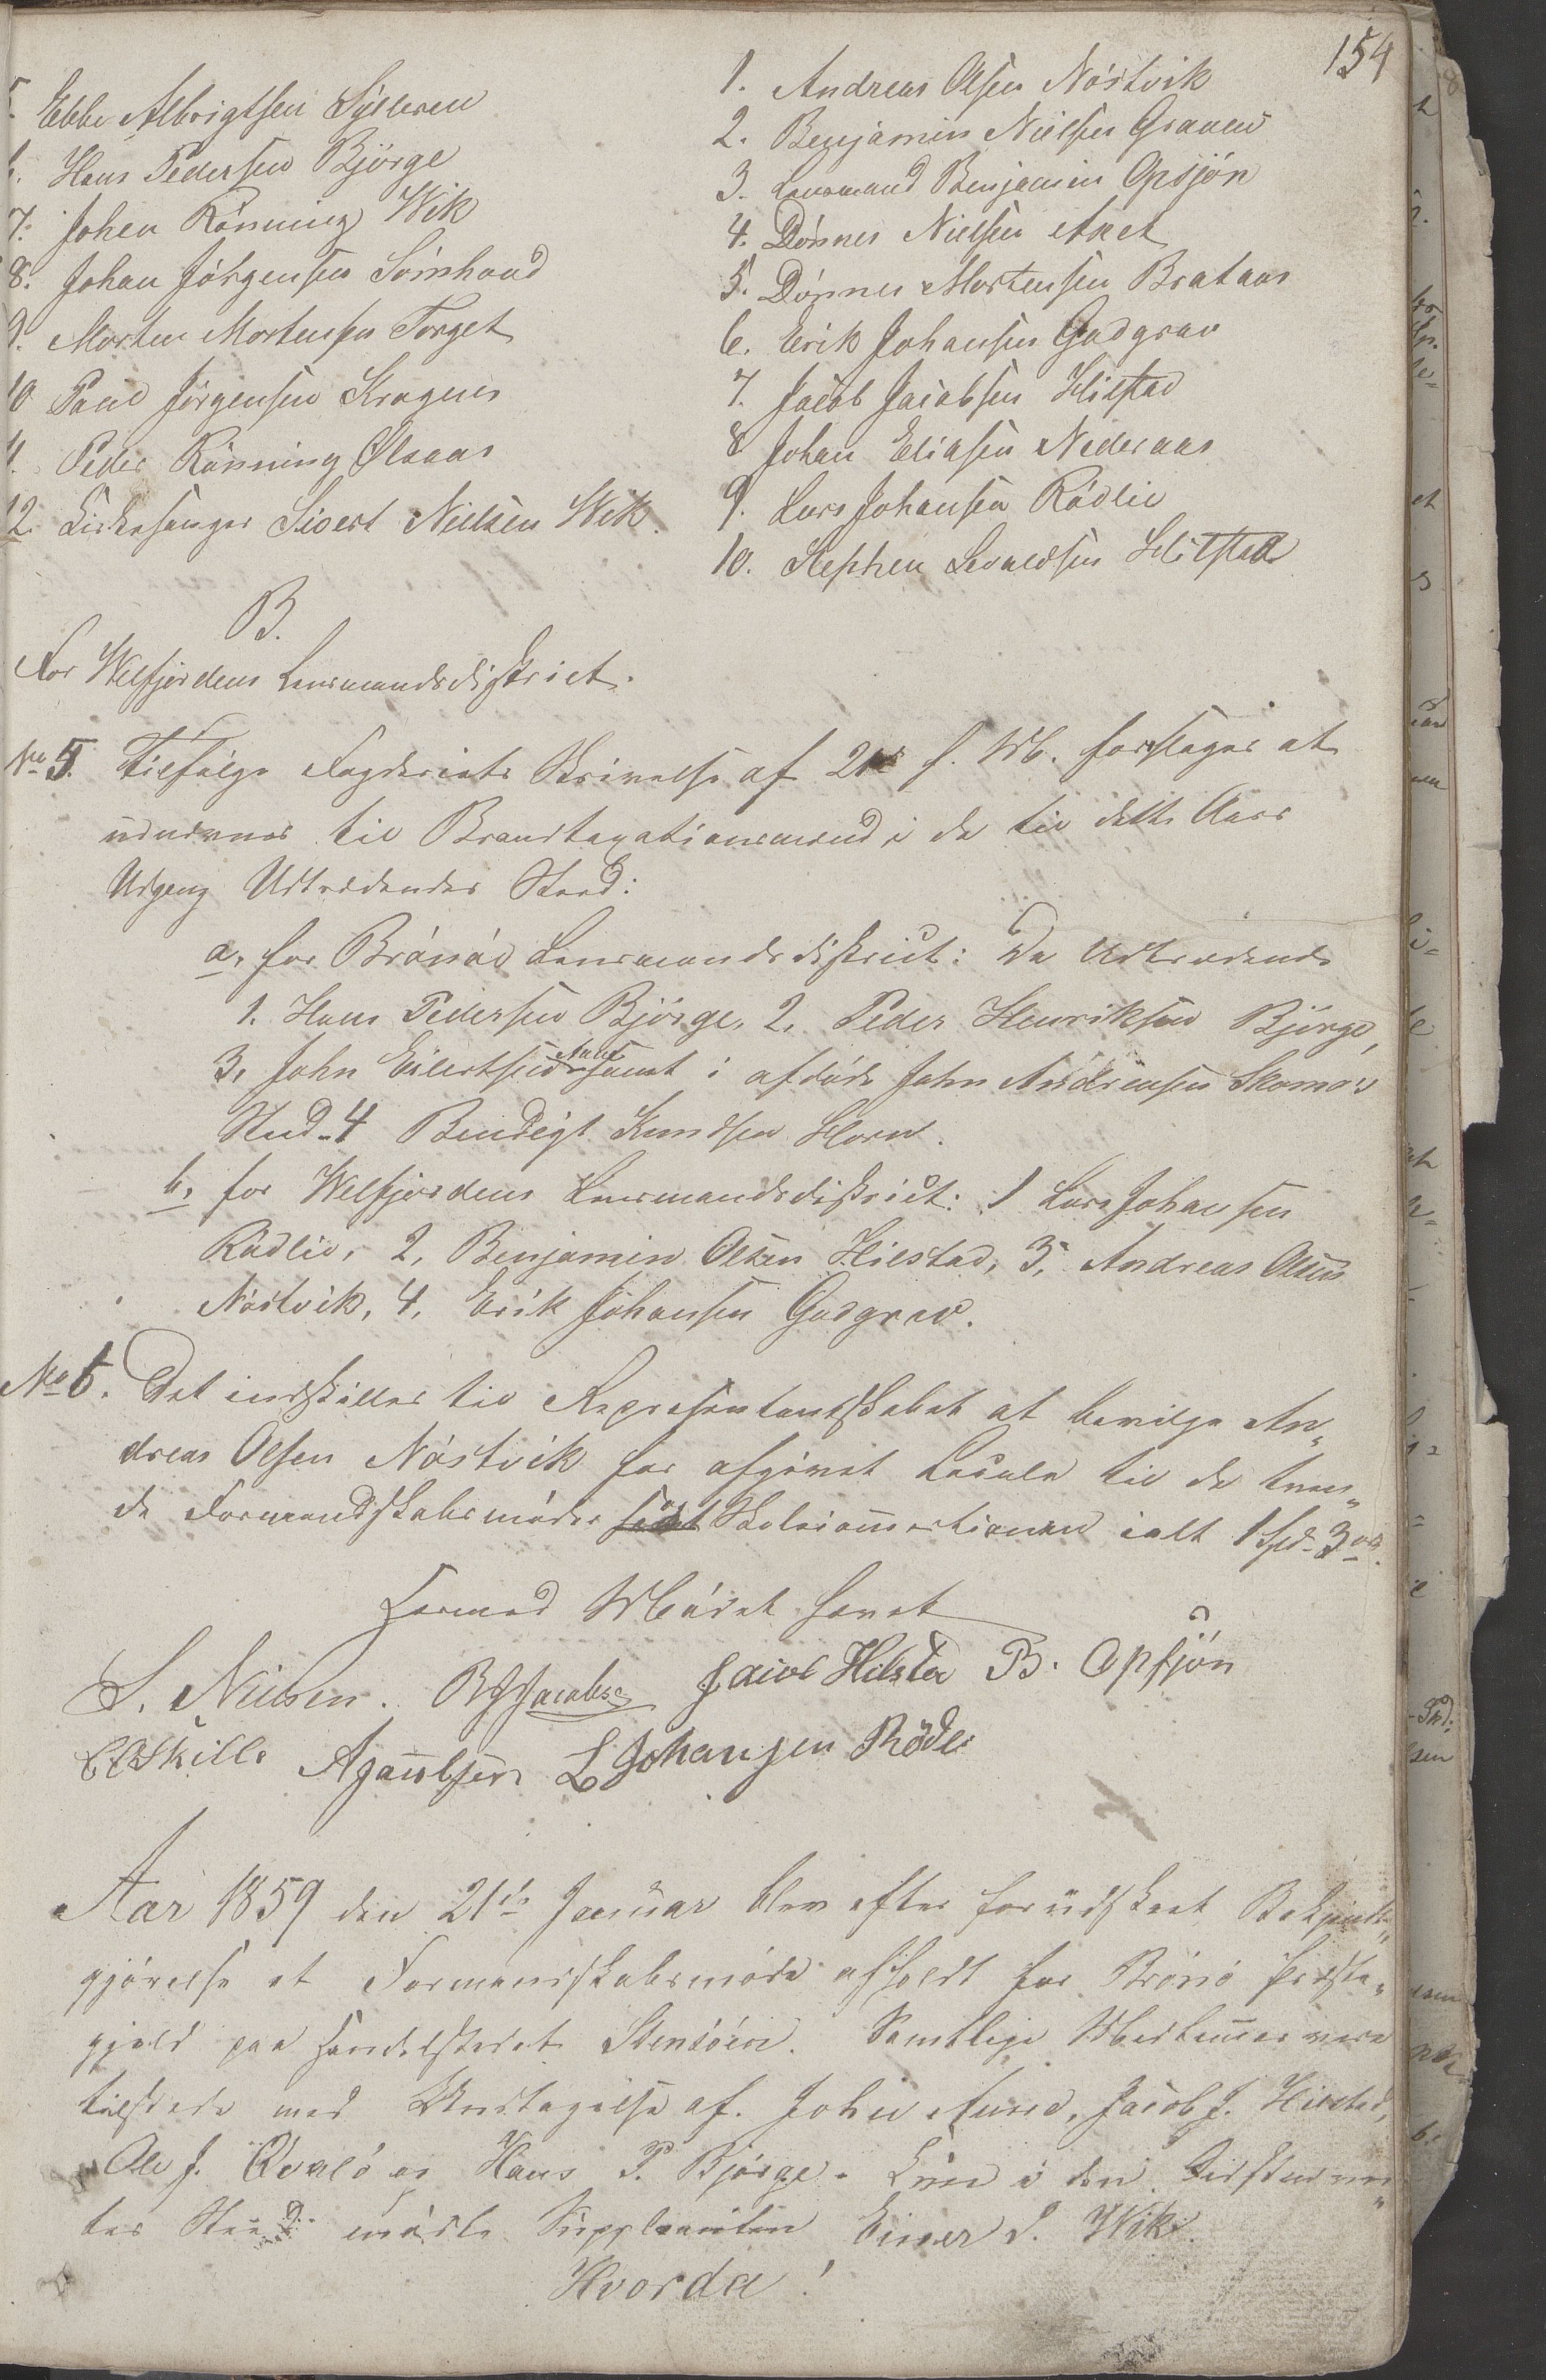 154
5. Ebbe Albrigtsen Sylteren
6. Hans Pedersen Bjørge
7. Johen Rønning Wik
8. Johan Jørgensen Sømhovd
9. Morten Mortensen Torget
10 Paul Jørgensen Kragnes
11. Peder Rønning Ølsaas
12. Kirkesanger Sivert Nielsen Wik.
1. Andreas Olsen Nøstvik
2. Benjamin Nielsen Graven
3. Lensmand Benjamin Opsjøn
4. Dønnes Nielsen Aket
5. Dønnes Mortensen Brataas
6. Erik Johansen Godgrav
7. Jacob Jacobsen Hilstad
8 Johan Eliasen Nederaas
9. Lars Johansen Rødlie
10. Stephen Hilstad
B.
For Welfjordens Lensmandsdistrict.
No 5. Tilfølge Fogderiets Skrivelse af 21de f. M. foreslages at
udnævnes til Brandtaxationsmænd i de til dette Aars
Udgang Udtrædendes Sted:
a, for Brønø Lensmandsdistrict: De Udtrædende
1. Hans Pedersen Bjørge, 2. Peder Henriksen Bjørge,
3, John Eilertsen Aune samt i afdøde John Andreasen Skomos
Sted 4 Bendigt Knudsen Horn.
b, for Welfjordens Lensmandsdistrict: 1 Lars Johansen
Rødlie, 2, Benjamin Olsen Hilstad, 3, Andreas Olsen
Nøstvik, 4, Erik Johansen Godgrav.
No 6. Det indstilles til Repræsentantskabet at bevilge An„
dreas Olsen Nøstvik for afgivet Locale til de tven„
de Formandskabsmøder og Skolecommissionen ialt 1 Spd. 3 ort.
Hermed Mødet hævet
S. Nielsen. B Jacobsen Jacob Hilstad B. Opsjøn
E Askills A Jacobsen L Johansen Rødli
Aar 1859 den 21de Januar blev efter forudskeet Bekjendt„
gjørelse et Formandskabsmøde afholdt for Brønø Præste„
gjeld paa Handelsstedet Stensøen. Samtlige Medlemmer vare
tilstede med Undtagelse af John Aune, Jacob J. Hilstad,
Ole J. Qvalø og Hans P. Bjørge. Kun i den Sidstnævn„
tes Sted mødte Supleanten Einer P. Wik.
Hvorda!